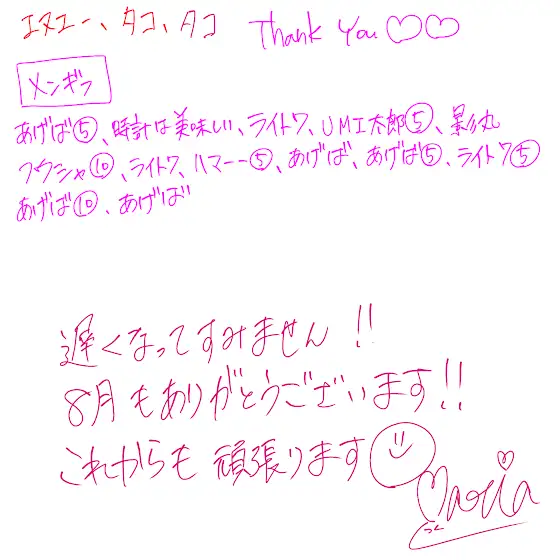 エヌエー、タコ、タコ Thank You♡♡
メンギフ
あげば⑤、時計は美味しい、ライトワ、UMI太郎⑤、影丸
フウシャ⑩、ライトワ、ハマー⑤、あげば、あげば⑤、ライトワ⑤
あげば⑩、あげば
遅くなってすみません!!
8月もありがとうございます!!
これからも頑張ります
Maria